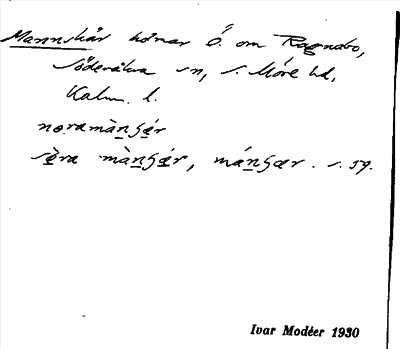 Mannskär kobbar Ö. om Ragnabo,
Söderåkra sn, S. Möre hd,
Kalm. l.
noramànʂǽr
sø̀ra mànʂǽr, mánʂær. s. 59.
Ivar Modéer 1930